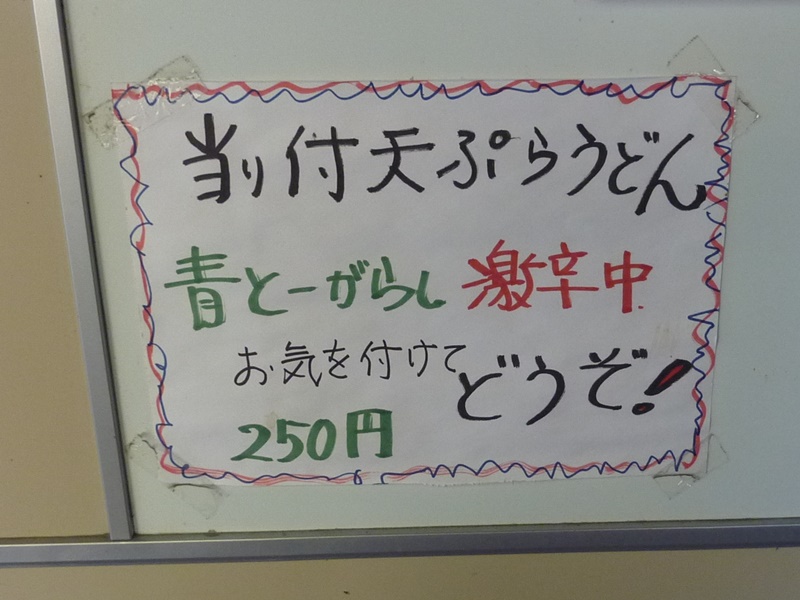 当り付天ぷらうどん
青とーがらし 激辛中
お気を付けてどうぞ!
250円